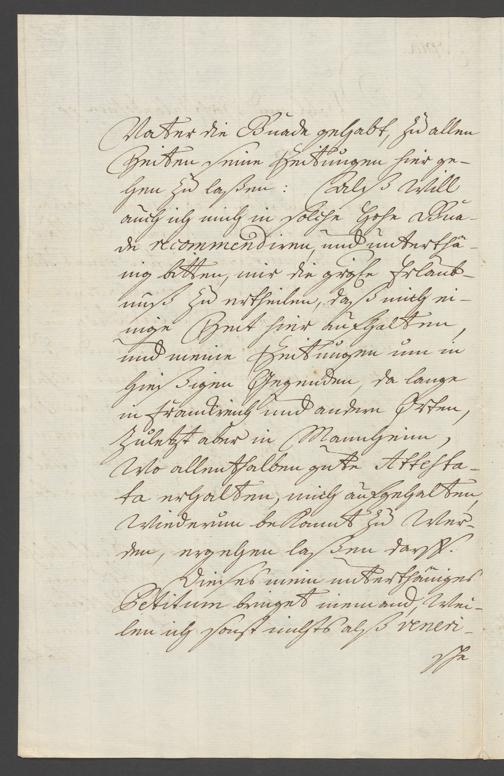 Vater die Gnade gehabt, zu allen
Zeiten seine Zeitungen hier ge-
hen zu laßen: Calß will
auch ich mich in solche Hohe Gna-
de recommendiren, und unterthä-
nig bitten, mir die große Erlaub-
nuß zu ertheilen, daß mich ei-
nige Zeit hier aufhalten,
und meine Zeitungen um in
hießigen Gegenden, da lange
in Franckreich und andern Orten,
zuletzt aber in Mannheim,
wo allenthalben gute Attesta-
ta erhalten, mich aufgehalten,
wiederum bekannt zu wer-
den, ergehen laßen darff.
Dieses mein unterthäniges
Petitum bringet niemand, wei-
len ich sonst nichts alß veneri-
sche